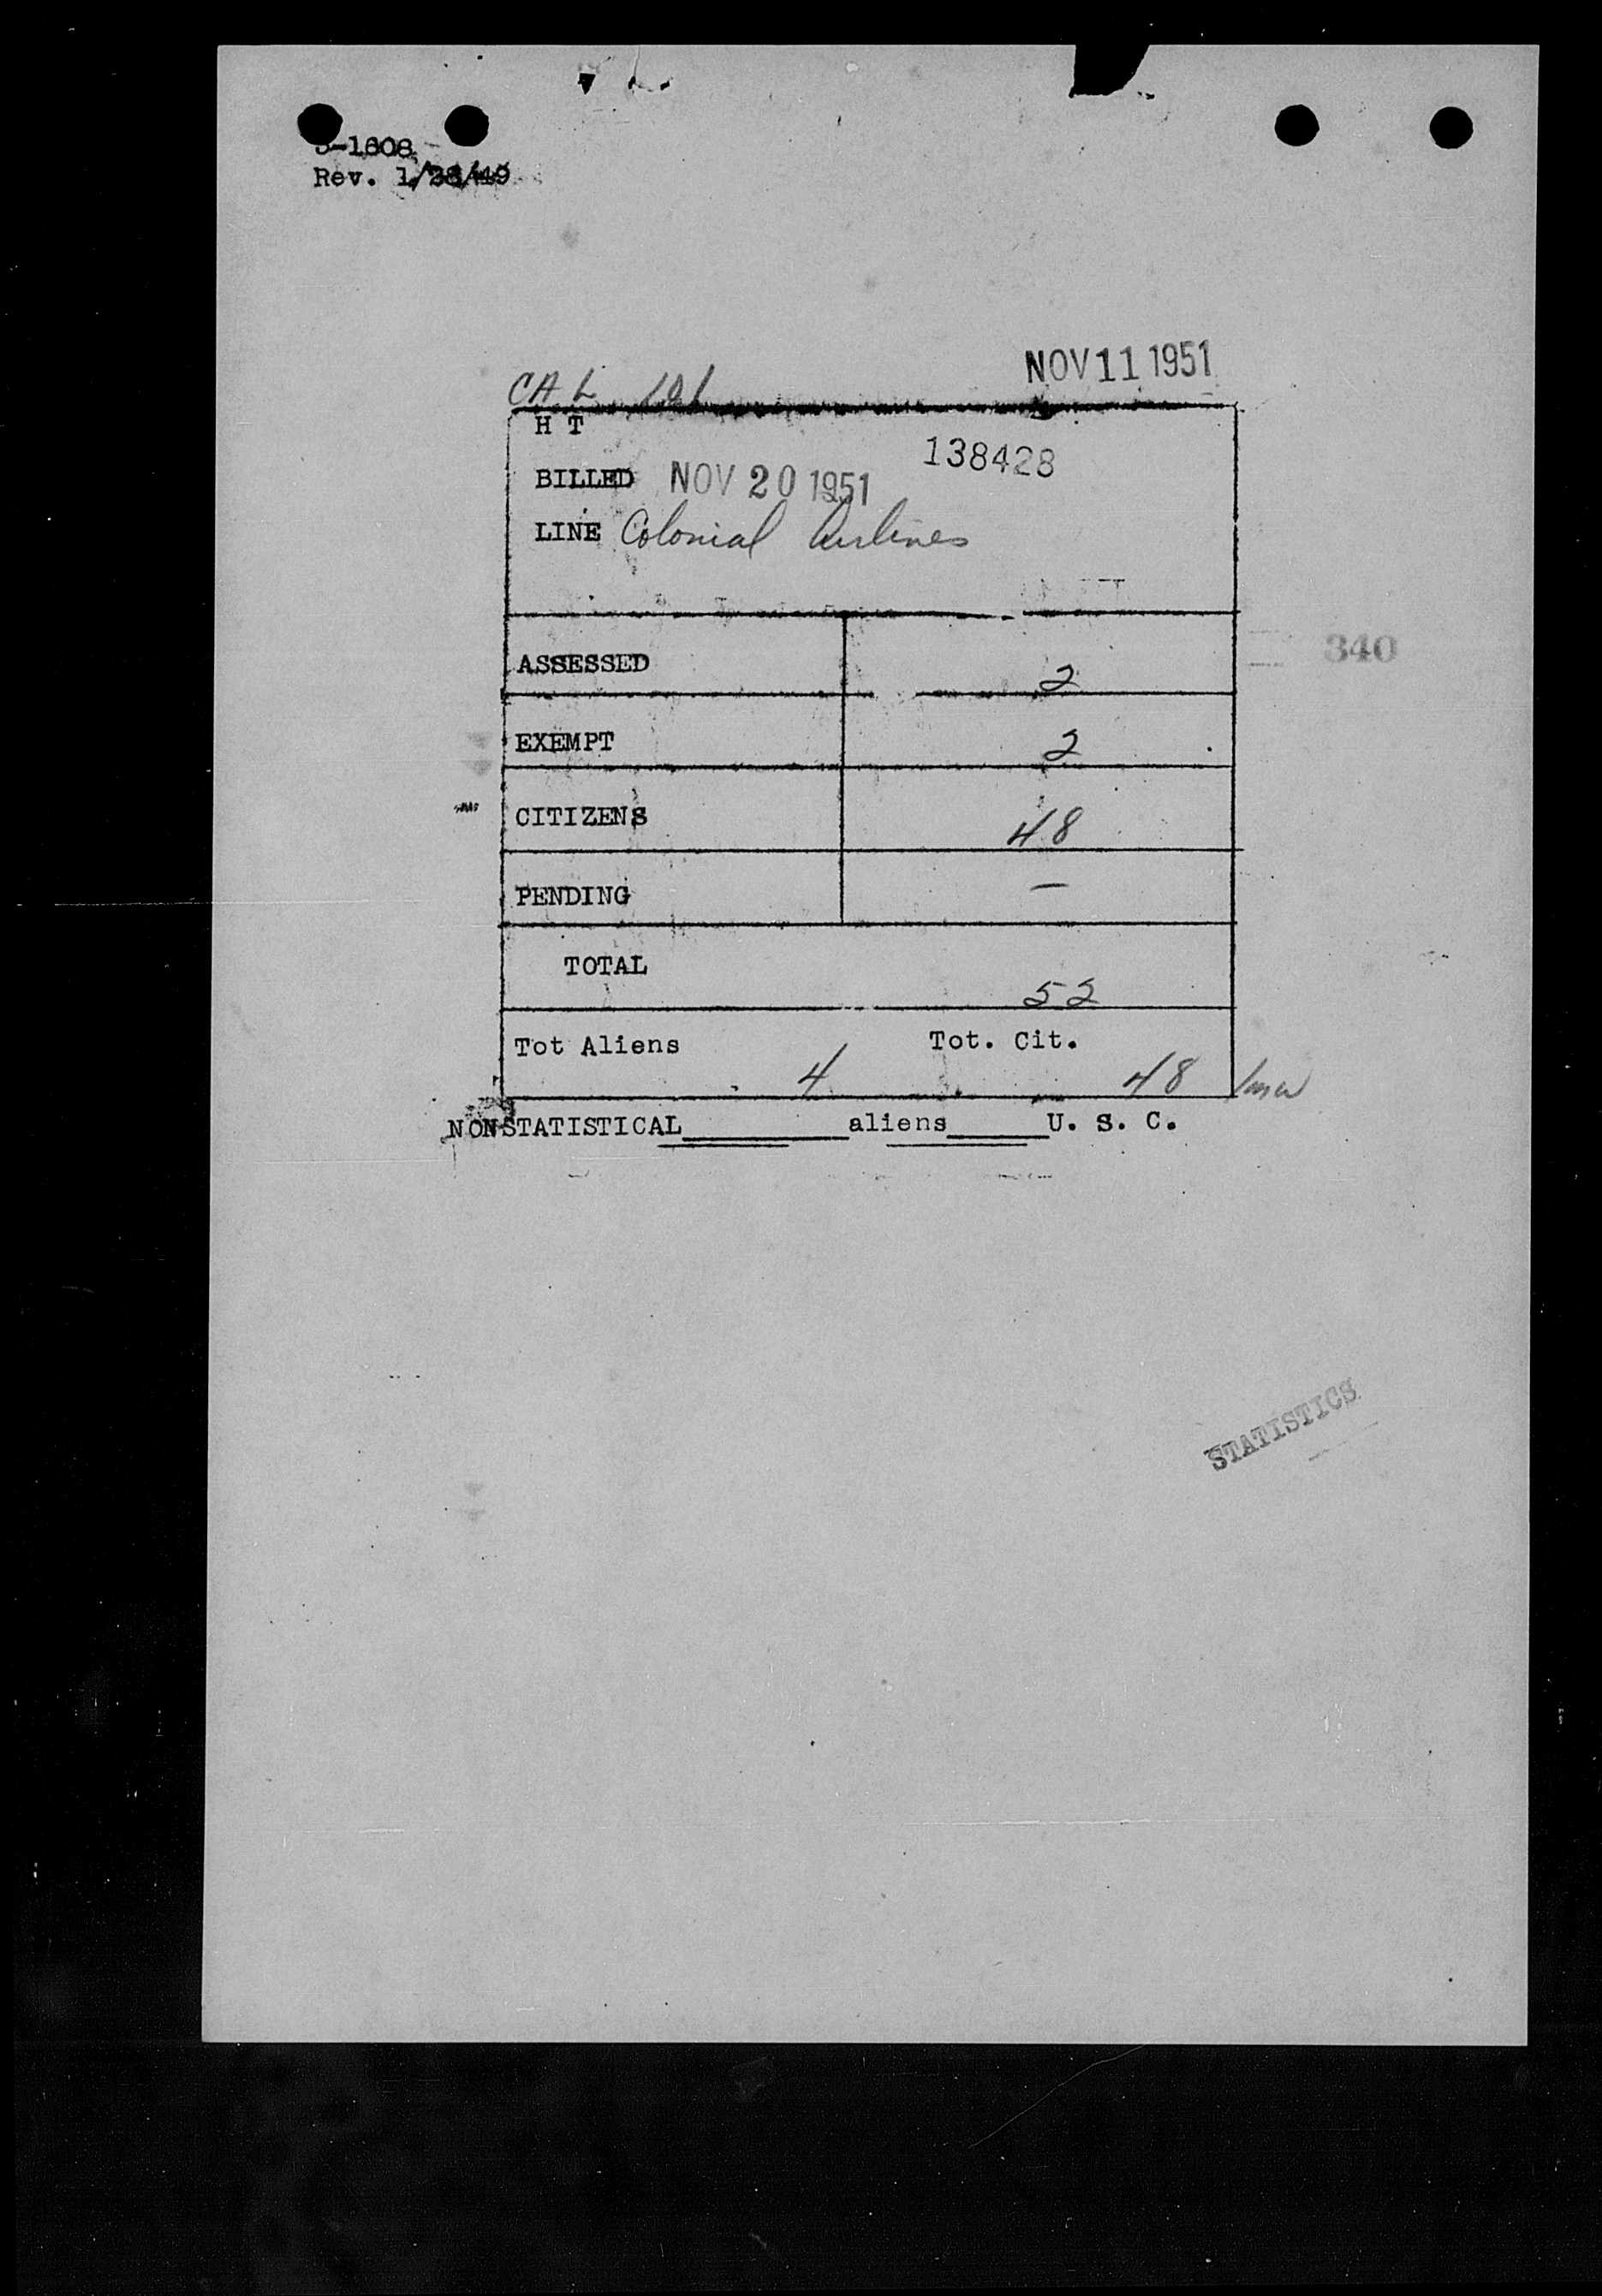 -1608
Rev. 1/28/49
NOV 11 1951
CAL 101
H T
138428
BILLED NOV 20 1951
LINE Colonial Airlines
340
ASSESSED 2
EXEMPT 2
CITIZENS 48
PENDING —
TOTAL 52
Tot Aliens 4 Tot. Cit. 48
NONSTATISTICAL________aliens_____U. S. C.
STATISTICS